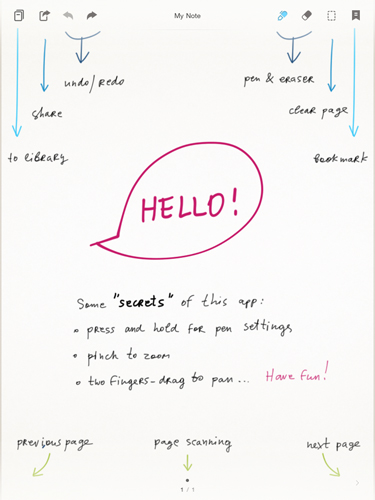 My Note
undo/redo
pen & eraser
share
clear page
to library
bookmark
HELLO!
Some "secrets" of this app:
press and hold for pen settings
pinch to zoom
two fingers-drag to pan... Have fun!
previous page
page scanning
next page
1 / 1